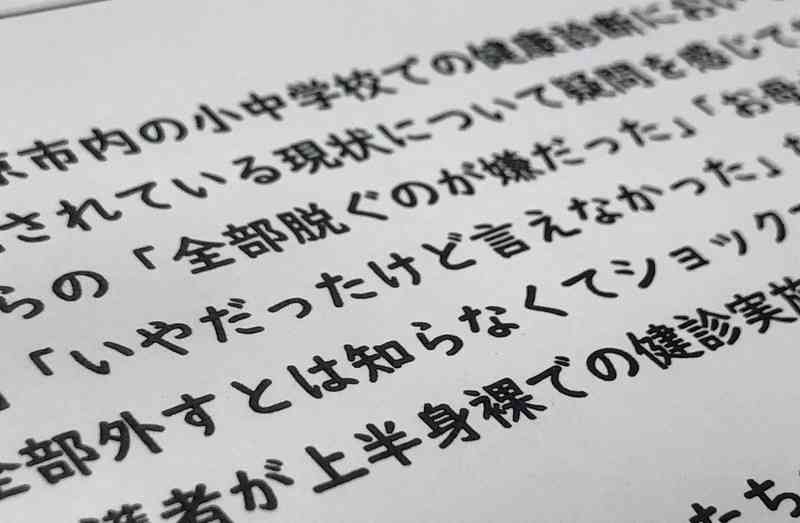 市内の小中学校での健康診断におい
されている現状について疑問を感じて
らの「全部脱ぐのが嫌だった」「お母
「いやだったけど言えなかった」
全部外すとは知らなくてショック
護者が上半身裸での健診実施
たち